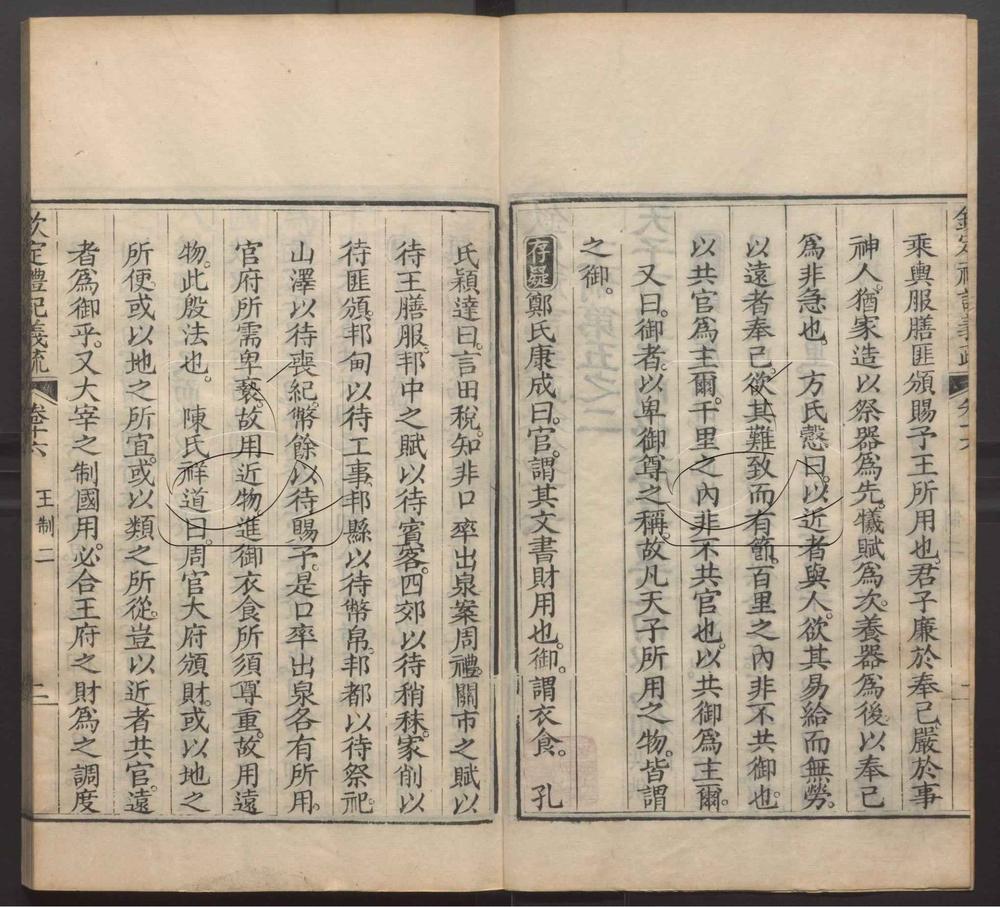 乘輿服膳匪頒賜予王所用也。君子廉於奉己。嚴於事
神人。猶家造以祭器爲先。犧賦爲次。養器爲後。以奉己
爲非急也。　方氏慤曰。以近者與人。欲其易給而無勞。
以遠者奉己。欲其難致而有節。百里之內非不共御也。
以共官爲主爾。千里之內非不共官也。以共御爲主爾。
又曰。御者。以卑御尊之稱。故凡天子所用之物。皆謂
之御。
存疑 鄭氏康成曰。官。謂其文書財用也。御。謂衣食。　孔
氏穎達曰。言田稅。知非口率出泉案周禮。關市之賦以
待王膳服。邦中之賦以待賓客。四郊以待稍秣。家削以
待匪頒。邦甸以待工事。邦縣以待幣帛。邦都以待祭祀。
山澤以待喪紀。幣餘以待賜予。是口率出泉各有所用。
官府所需卑褻。故用近物。進御衣食所須尊重。故用遠
物。此殷法也。　陳氏祥道曰。周官大府頒財。或以地之
所便。或以地之所宜。或以類之所從。豈以近者共官。遠
者爲御乎。又大宰之制國用。必合王府之財爲之調度
欽定禮記義疏
卷十六
王制二
二